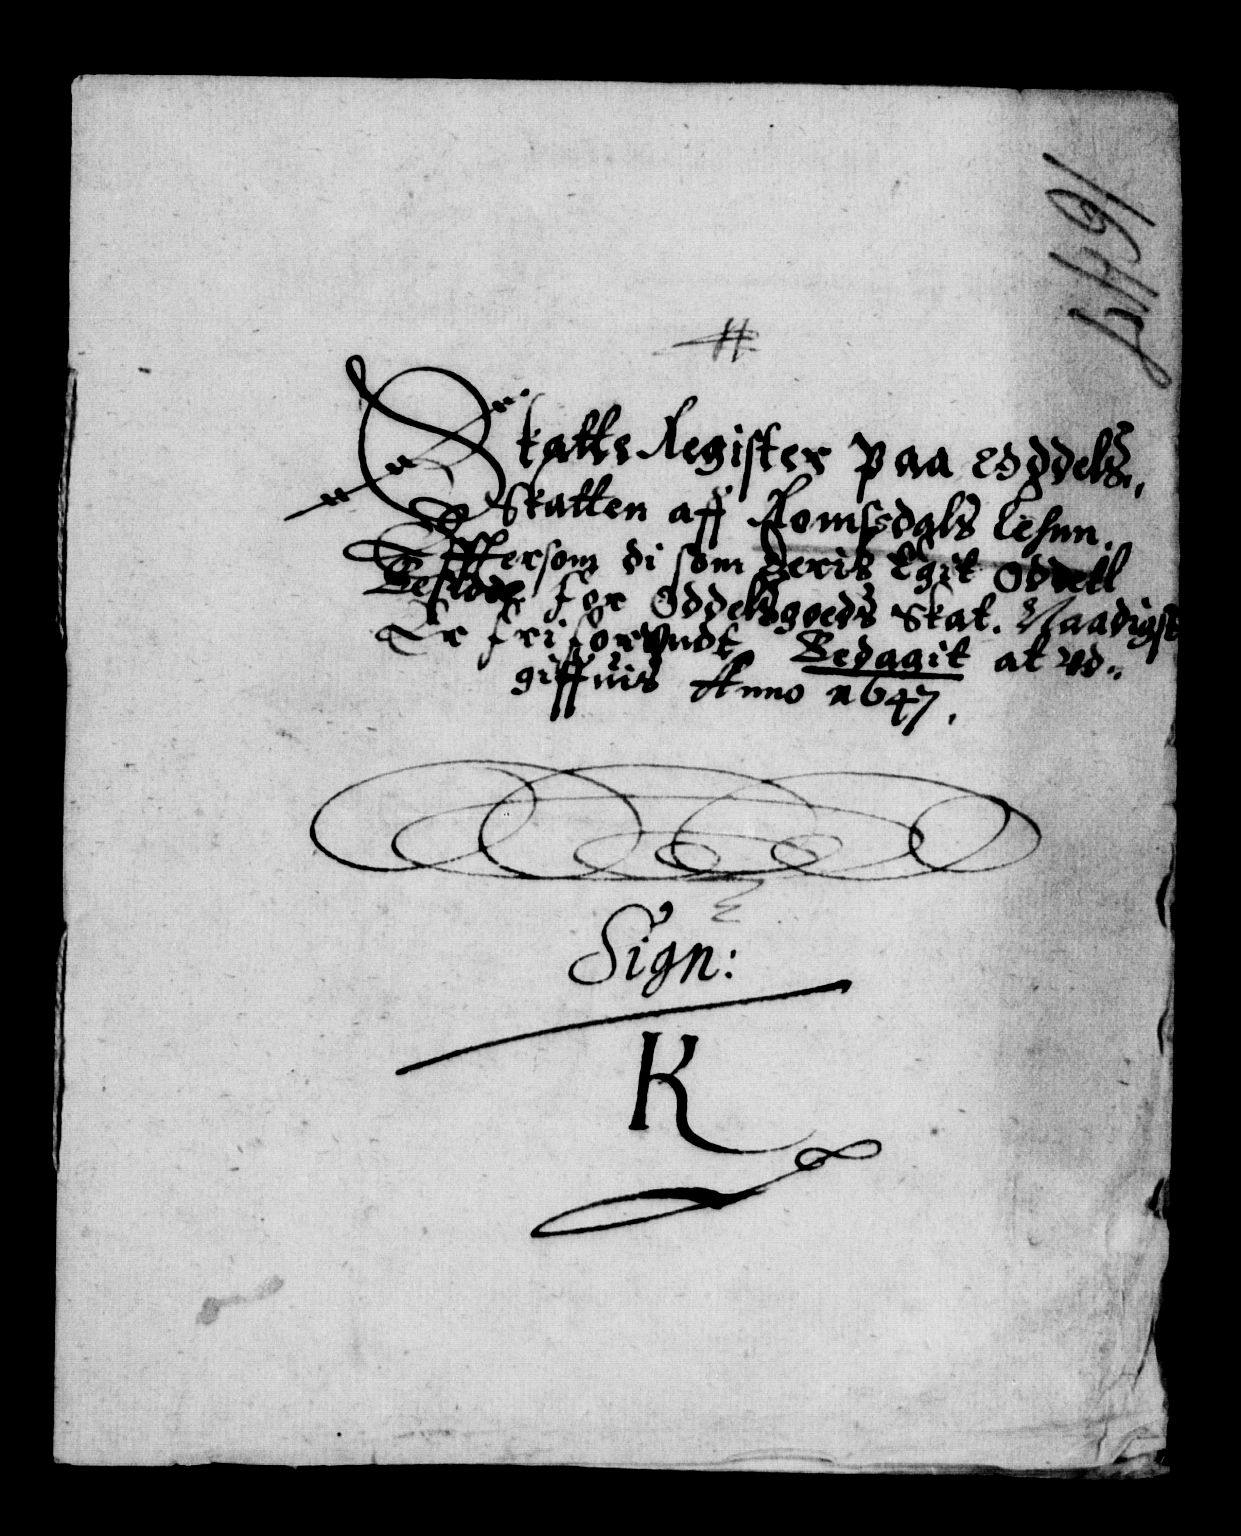 1647
Skatts Register paa Oddels,
Skatten aff Romsdals Lehnn.
Efftersom di som deris Egit Oddell
Besidde for Oddelsgoeds Skat. Naadigst
Er fri forundt, Bedagit at vd,,
giffuis Anno 1647.
Sign:
K